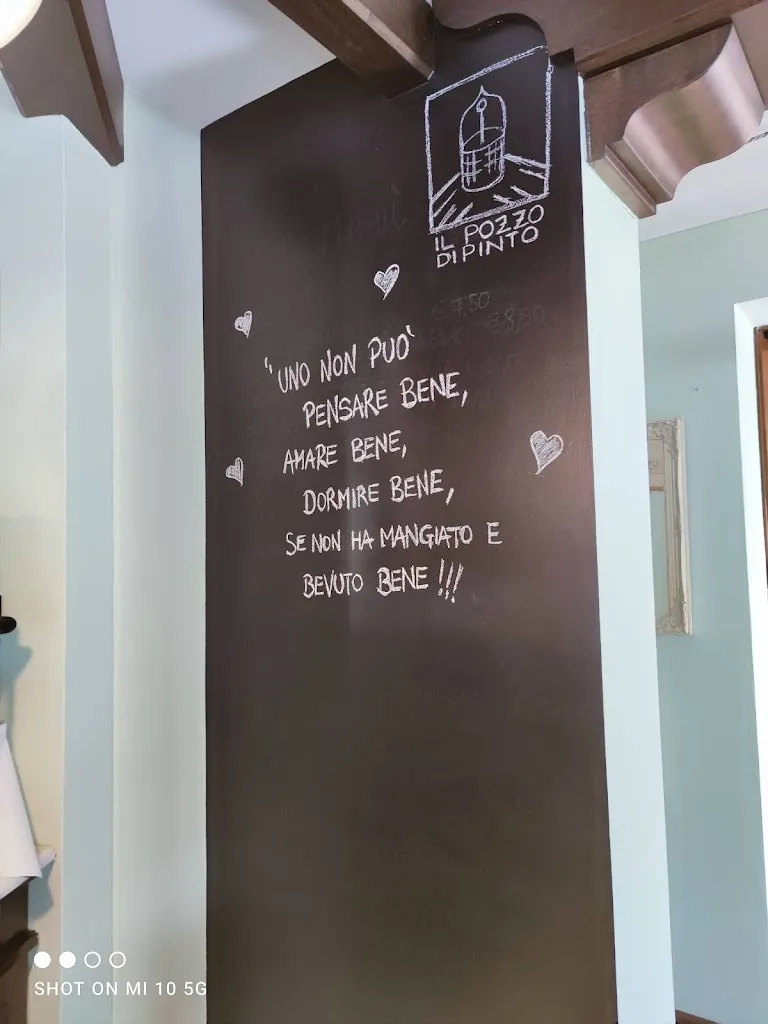 IL POZZO
DIPINTO
€7,50
€8,50
"UNO NON PUO'
PENSARE BENE,
AMARE BENE,
DORMIRE BENE,
SE NON HA MANGIATO E
BEVUTO BENE!!!
SHOT ON MI 10 5G